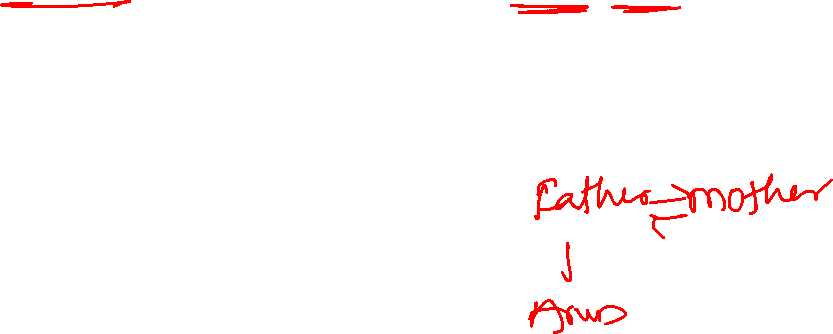 Father mother
Arun